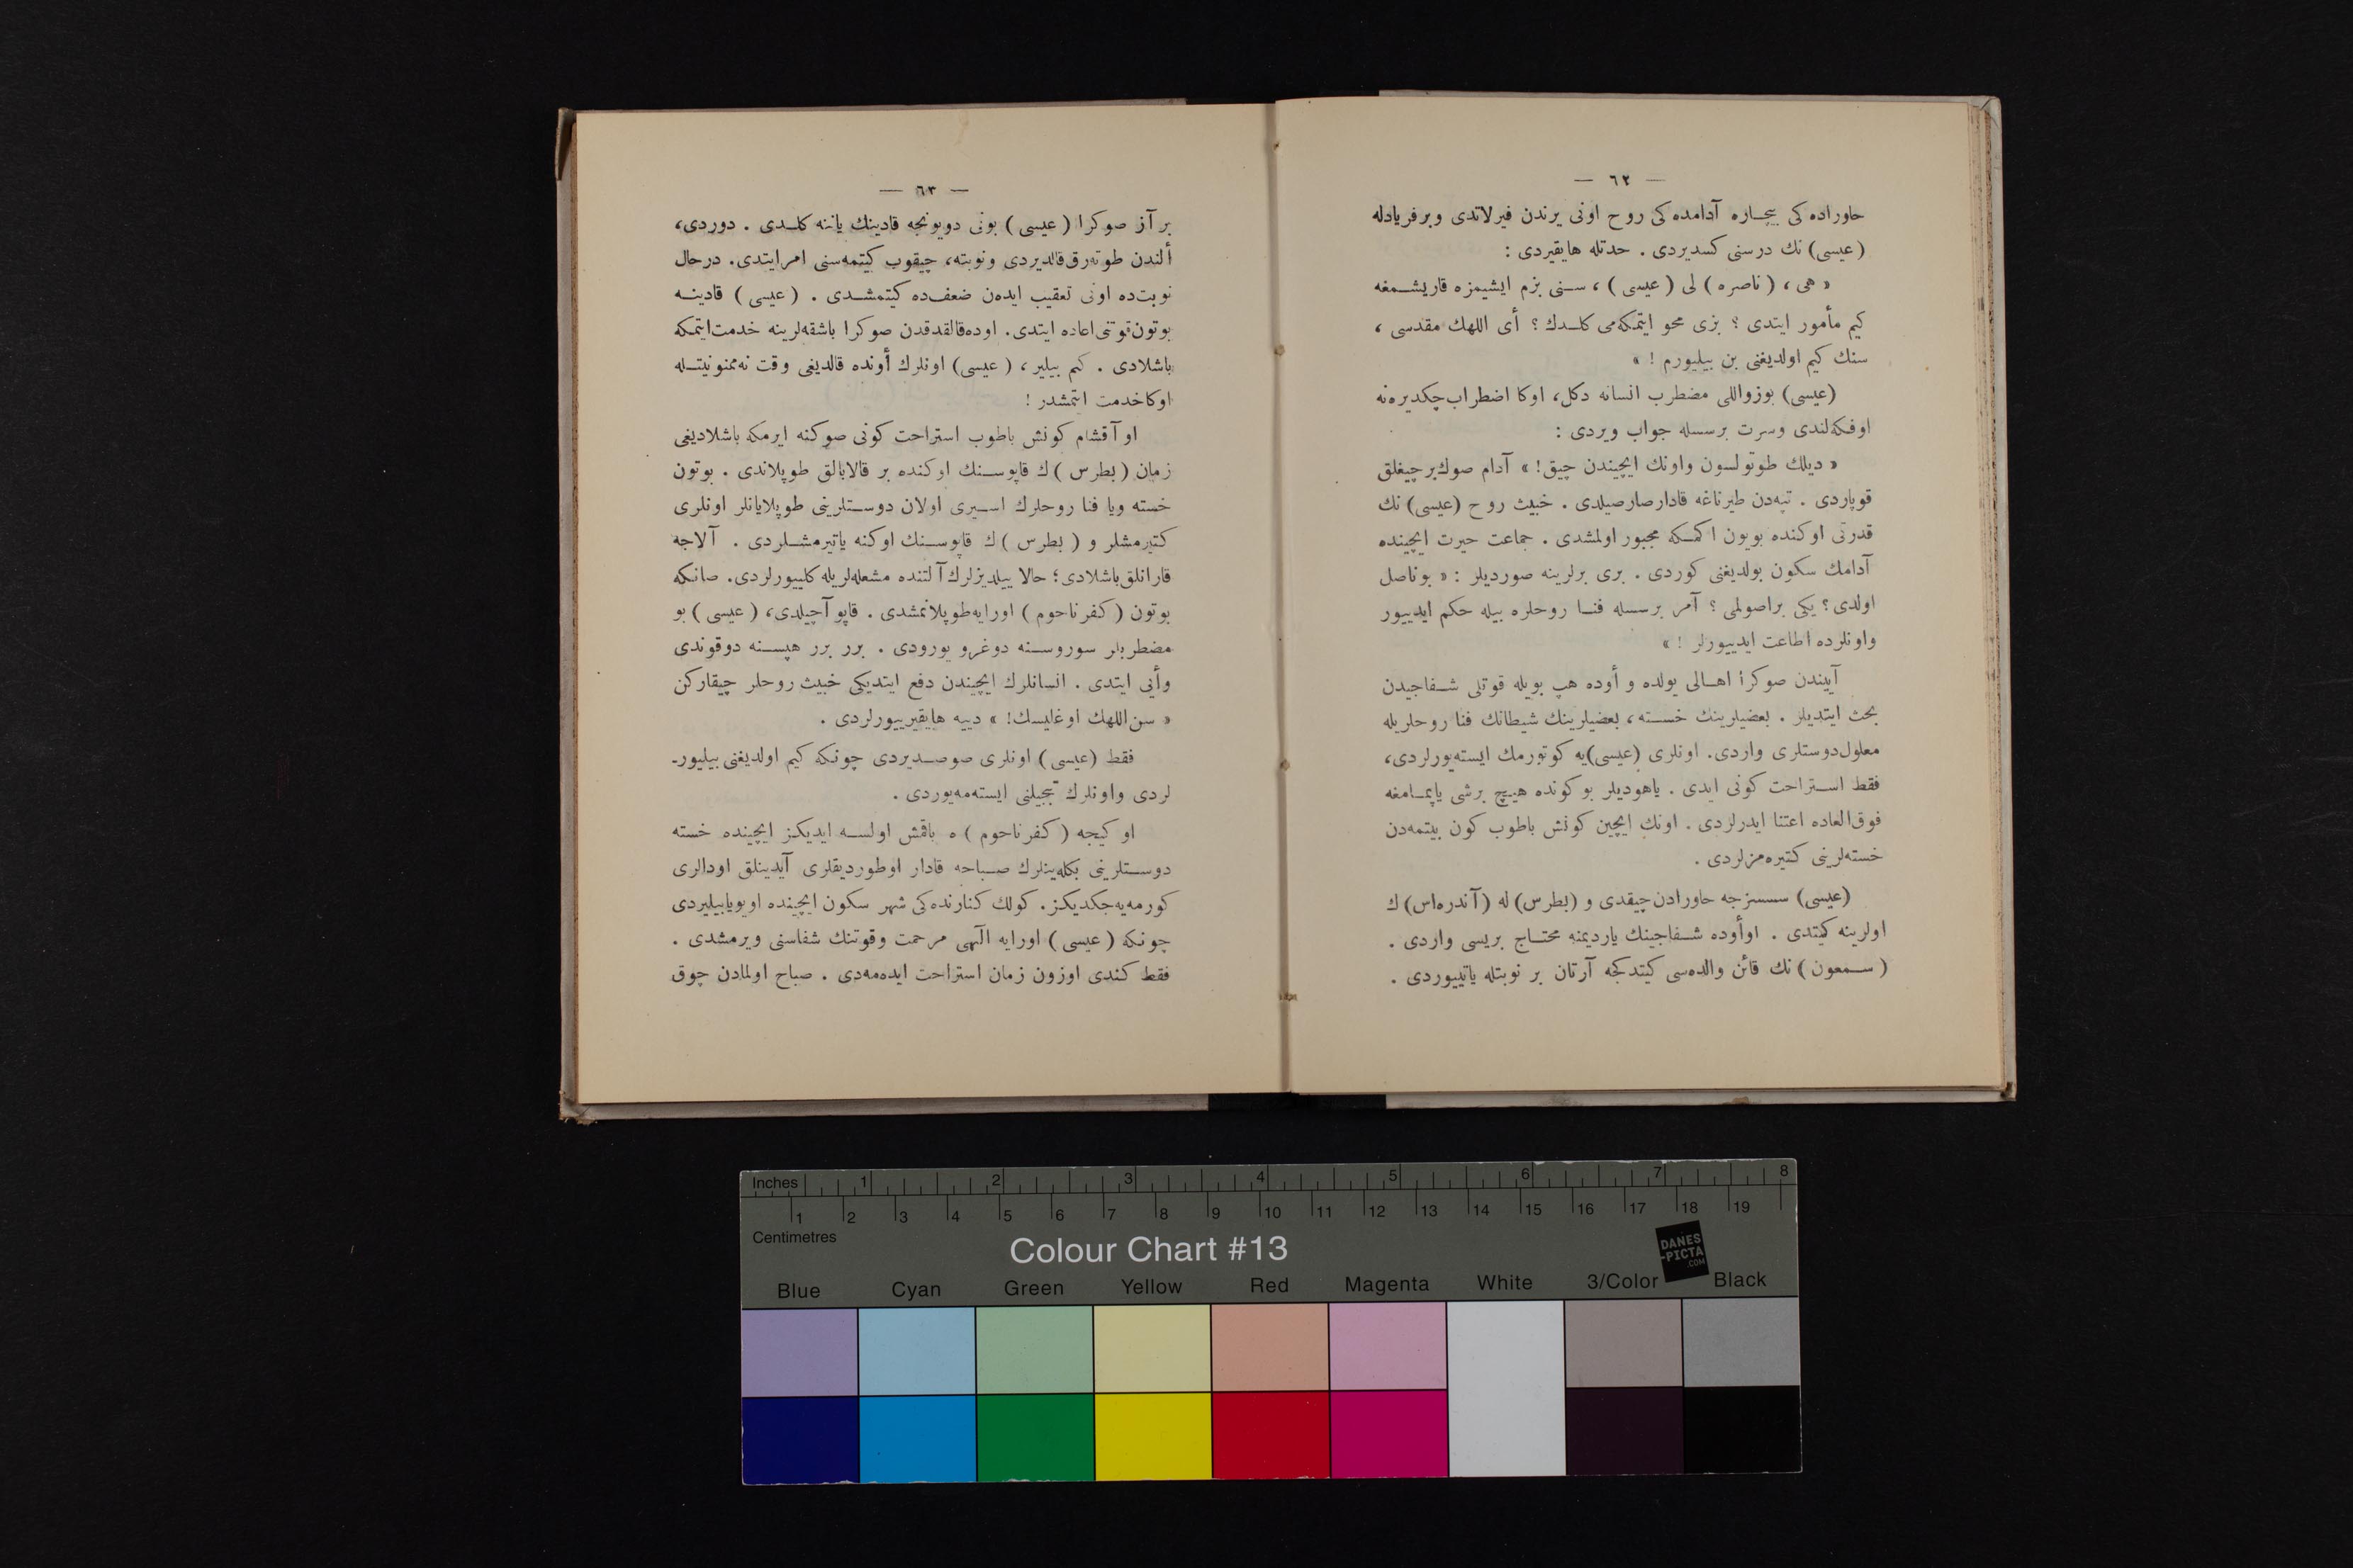 — ٦٢ —
حاوراده كى بيچاره آدامده كى روح اونى يرندن فيرلاتدى وبر فريادله
(عيسى) نك درسنى كسديردى . حدتله هايقيردى :
« هى ، ( ناصره ) لى ( عيسى ) ، سنى بزم ايشيمزه قاريشمغه
كيم مأمور ايتدى ؟ بزى محو ايتمكه‌مى كلدك ؟ أى اللهك مقدسى ،
سنك كيم اولديغنى بن بيليورم ! »
(عيسى) بوزواللى مضطرب انسانه دكل، اوكا اضطراب چكديره‌نه
اوفكه‌لندى وسرت برسسله جواب ويردى :
« ديلك طوتولسون واونك ايچيندن چيق! » آدام صوك بر چيغلق
قوپاردى . تپه‌دن طيرناغه قادار صارصيلدى . خبيث روح (عيسى) نك
قدرتى اوكنده بويون اكمكه مجبور اولمشدى . جماعت حيرت ايچينده
آدامك سكون بولديغنى كوردى . برى برلرينه صورديلر : « بو ناصل
اولدى؟ يكى براصولمى ؟ آمر برسسله فنا روحلره بيله حكم ايدييور
واونلرده اطاعت ايدييورلر ! »
آييندن صوكرا اهالى يولده و أوده هپ بويله قوتلى شفاجيدن
بحث ايتديلر . بعضيلرينك خسته ، بعضيلرينك شيطانك فنا روحلريله
معلول دوستلرى واردى. اونلرى (عيسى)يه كوتورمك ايسته‌يورلردى،
فقط استراحت كونى ايدى . ياهوديلر بو كونده هيچ برشى ياپمامغه
فوق‌العاده اعتنا ايدرلردى . اونك ايچين كونش باطوب كون بيتمه‌دن
خسته‌لرينى كتيره‌مزلردى .
(عيسى) سسسزجه حاورادن چيقدى و (بطرس) له (آندره‌اس) ك
اولرينه كيتدى . او أوده شفاجينك يارديمنه محتاج بريسى واردى .
( سمعون ) نك قائن والده‌سى كيتدكجه آرتان بر نوبتله ياتييوردى .
— ٦٣ —
بر آز صوكرا ( عيسى ) بونى دويونجه قادينك ياننه كلدى . دوردى،
ألندن طوته‌رق قالديردى ونوبته، چيقوب كيتمه‌سنى امر ايتدى. درحال
نوبت‌ده اونى تعقيب ايده‌ن ضعف‌ده كيتمشدى . ( عيسى ) قادينه
بوتون قوتنى اعاده ايتدى. اوده قالقدقدن صوكرا باشقه‌لرينه خدمت ايتمكه
باشلادى . كيم بيلير ، ( عيسى) اونلرك أونده قالديغى وقت نه ممنونيتله
اوكا خدمت ايتمشدر !
او آقشام كونش باطوب استراحت كونى صوكنه ايرمكه باشلاديغى
زمان ( بطرس ) ك قاپوسنك اوكنده بر قالابالق طوپلاندى . بوتون
خسته ويا فنا روحلرك اسيرى اولان دوستلرينى طوپلايانلر اونلرى
كتيرمشلر و ( بطرس ) ك قاپوسنك اوكنه ياتيرمشلردى . آلاجه
قارانلق باشلادى؛ حالا ييلديزلرك آلتنده مشعله‌لريله كلييورلردى. صانكه
بوتون ( كفرناحوم ) اورايه طوپلانمشدى . قاپو آچيلدى، ( عيسى ) بو
مضطربلر سوروسنه دوغرو يورودى . برر برر هپسنه دوقوندى
وأيى ايتدى . انسانلرك ايچيندن دفع ايتديكى خبيث روحلر چيقاركن
« سن اللهك اوغليسك! » دييه هايقيرييورلردى .
فقط (عيسى) اونلرى صوصديردى چونكه كيم اولديغنى بيليور-
لردى واونلرك تبجيلنى ايسته‌مه‌يوردى .
او كيجه ( كفرناحوم ) ه باقمش اولسه ايديكز ايچينده خسته
دوستلرينى بكله‌ينلرك صباحه قادار اوطورديقلرى آيدينلق اودالرى
كورمه‌يه‌جكديكز. كولك كنارنده‌كى شهر سكون ايچينده اويويابيليردى
چونكه ( عيسى ) اورايه الٓهى مرحمت وقوتنك شفاسنى ويرمشدى .
فقط كندى اوزون زمان استراحت ايده‌مه‌دى . صباح اولمادن چوق
Inches 1 2 3 4 5 6 7 8
1 2 3 4 5 6 7 8 9 10 11 12 13 14 15 16 17 18 19
Centimetres
Colour Chart #13
DANES
-PICTA
.COM
Blue Cyan Green Yellow Red Magenta White 3/Color Black